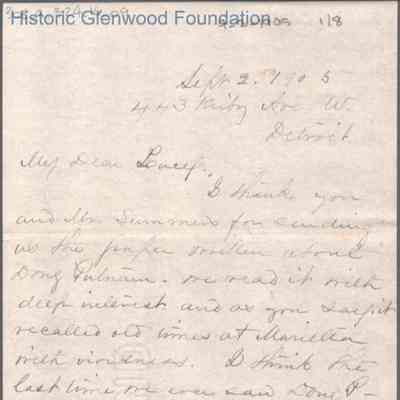 Historic Glenwood Foundation
1/8
Sept. 2. 1905
443 Kirby Ave W.
Detroit
My Dear Lucy.
I thank you
and Mr. Summers for sending
us the paper written about
Doug Putnam. We read it with
deep interest and as you say it
recalled old times at Marietta
with vividness. I think the
last time we ever saw Doug P-